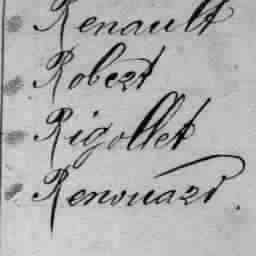 Renault
Robert
Rigollet
Renouard.